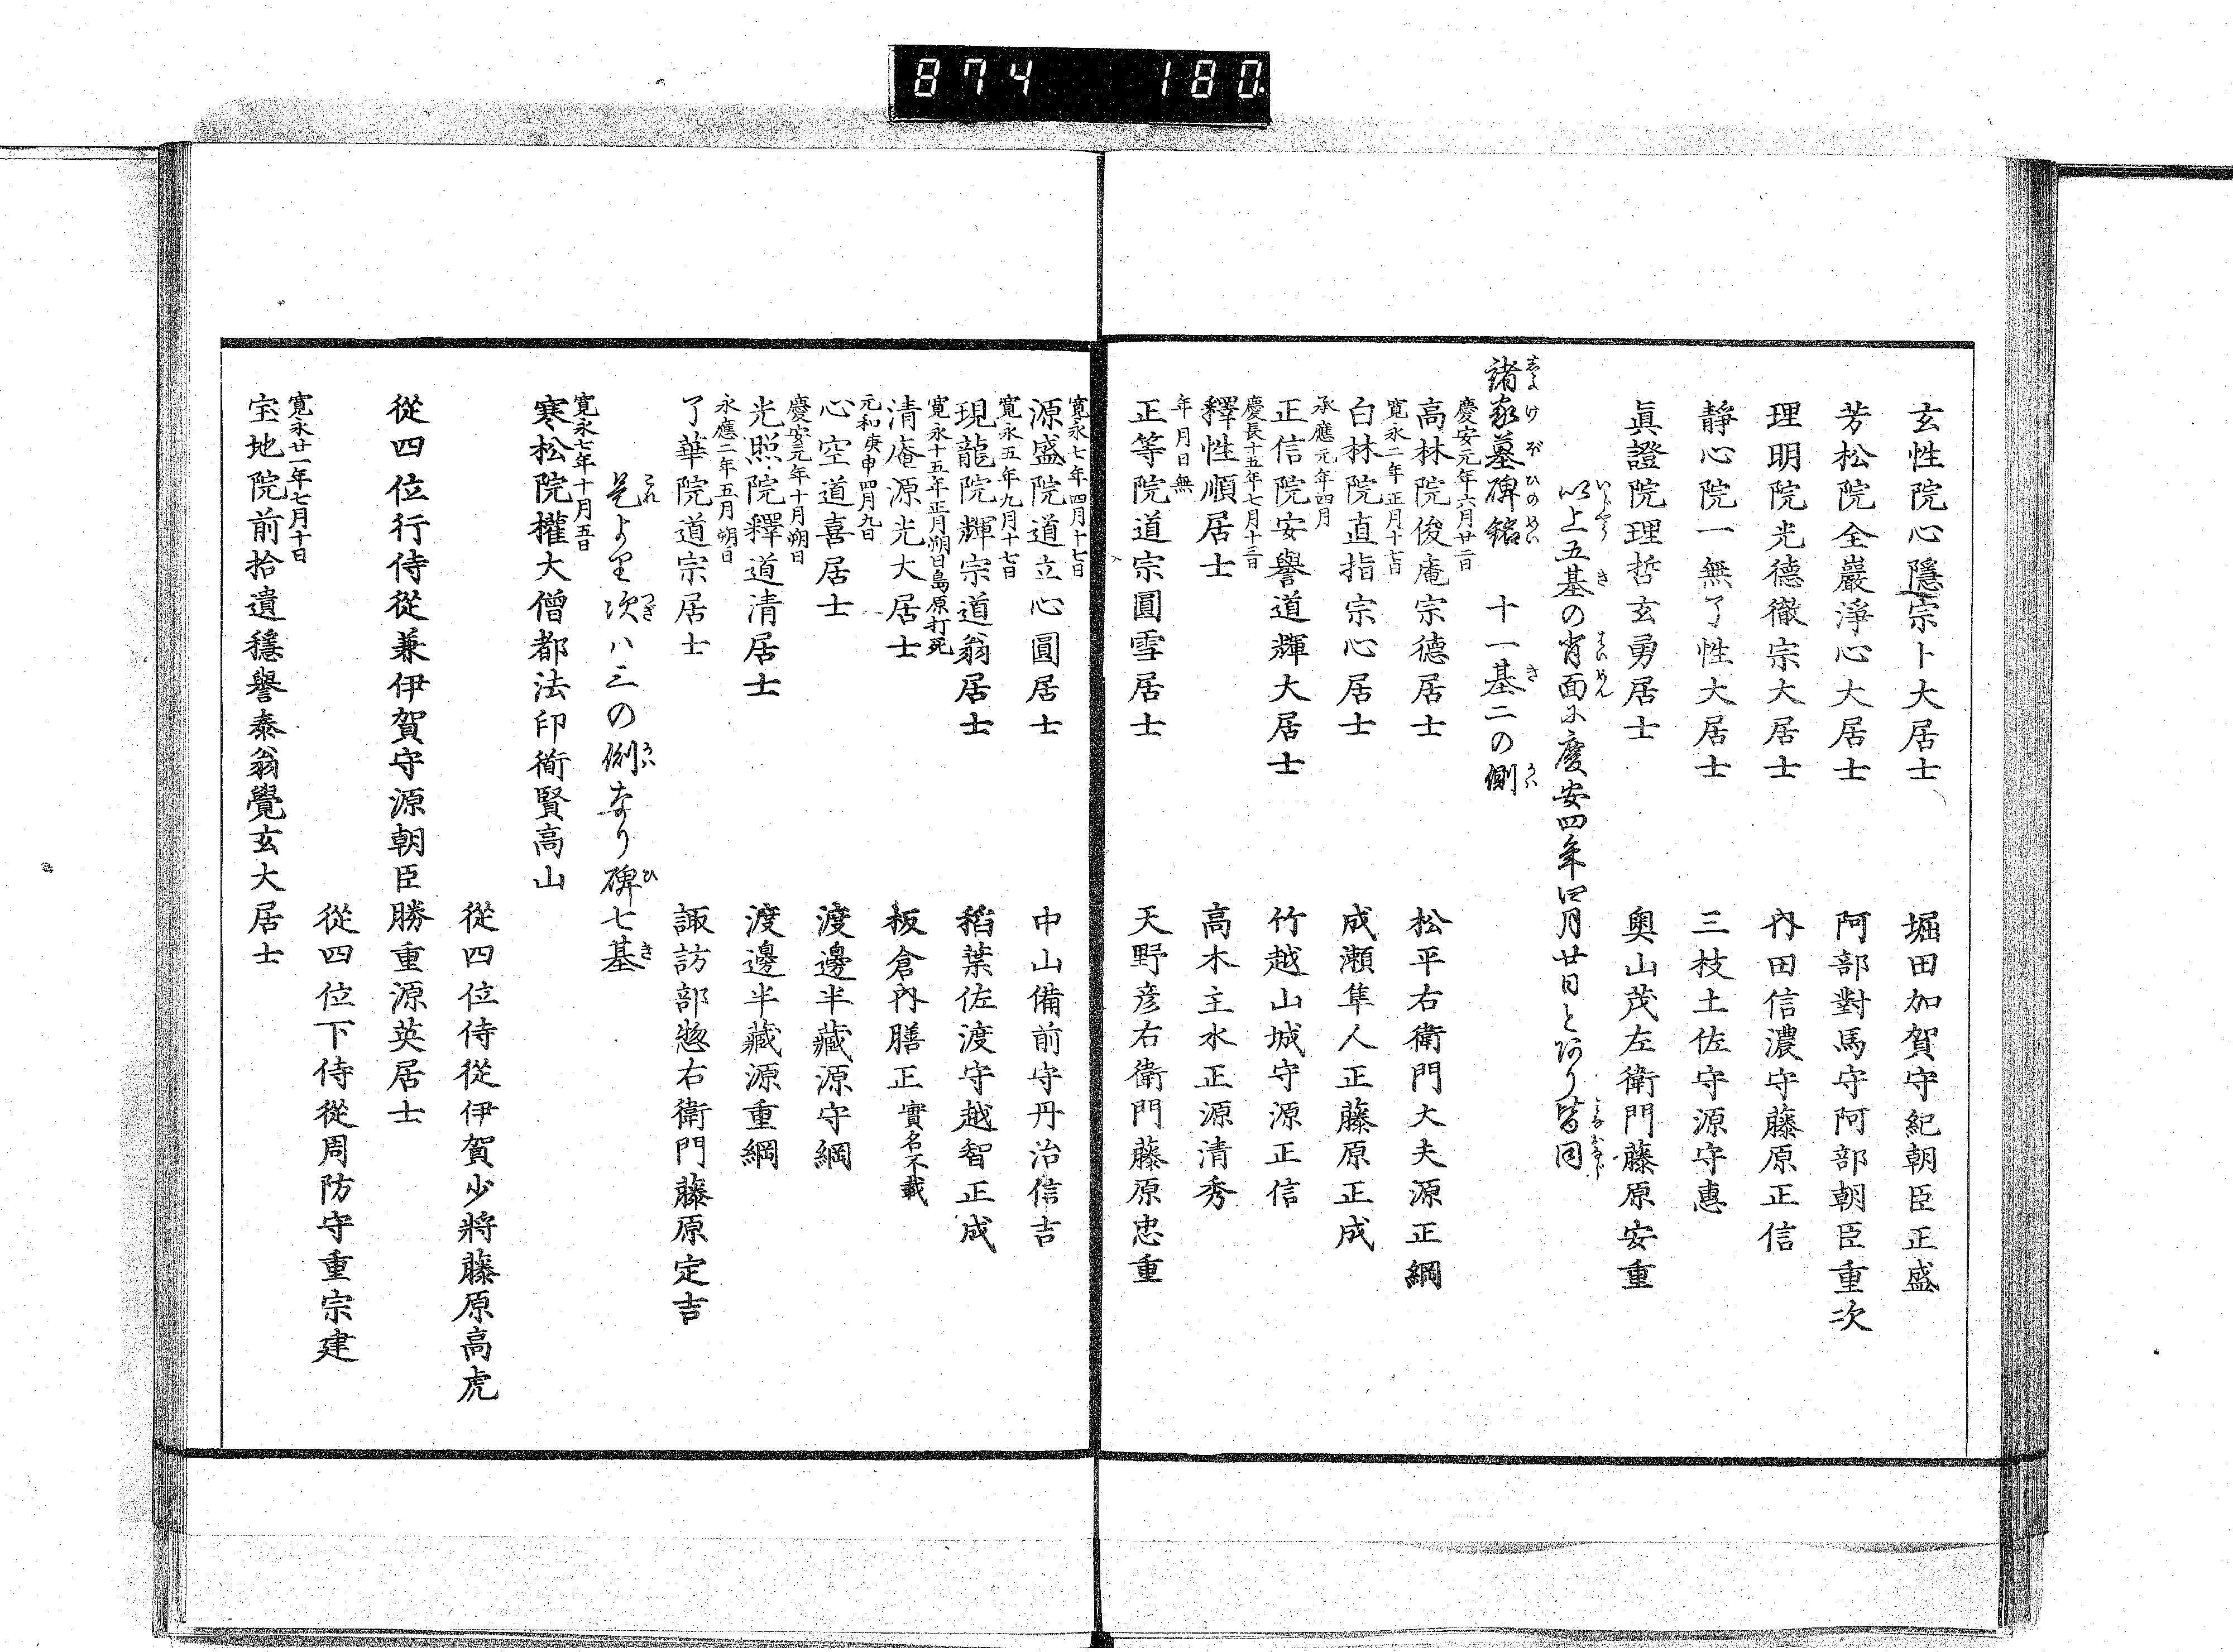 874 180
玄性院心隱宗卜大居士 堀田加賀守紀朝臣正盛
芳松院全巖淨心大居士 阿部對馬守阿部朝臣重次
理明院光德徹宗大居士 内田信濃守藤原正信
靜心院一無了性大居士 三枝土佐守源守惠
眞證院理哲玄勇居士 奧山茂左衛門藤原安重
以上五基の背面に慶安四年四月廿日とあり皆同
諸家墓碑銘 十一基二の側
慶安元年六月廿二日
高林院俊庵宗德居士 松平右衛門大夫源正綱
寛永二年正月十七日
白林院直指宗心居士 成瀬隼人正藤原正成
承應元年四月
正信院安譽道輝大居士 竹越山城守源正信
慶長十五年七月十三日
釋性順居士 高木主水正源清秀
年月日無
正等院道宗圓雪居士 天野彦右衛門藤原忠重
寛永七年四月十七日
源盛院道立心圓居士 中山備前守丹治信吉
寛永五年九月十七日
現龍院輝宗道翁居士 稻葉佐渡守越智正成
寛永十五年正月朔日島原打死
清庵源光大居士 板倉内膳正 實名不載
元和庚申四月九日
心空道喜居士 渡邊半藏源守綱
慶安元年十月朔日
光照院釋道清居士 渡邊半藏源重綱
永應二年五月朔日
了華院道宗居士 諏訪部惣右衛門藤原定吉
是より次ハ三の側なり碑七基
寛永七年十月五日
寒松院權大僧都法印衜賢高山
從四位侍從伊賀少將藤原高虎
從四位行侍從兼伊賀守源朝臣勝重源英居士
從四位下侍從周防守重宗建
寛永廿一年七月十日
宝地院前拾遺穩譽泰翁覺玄大居士